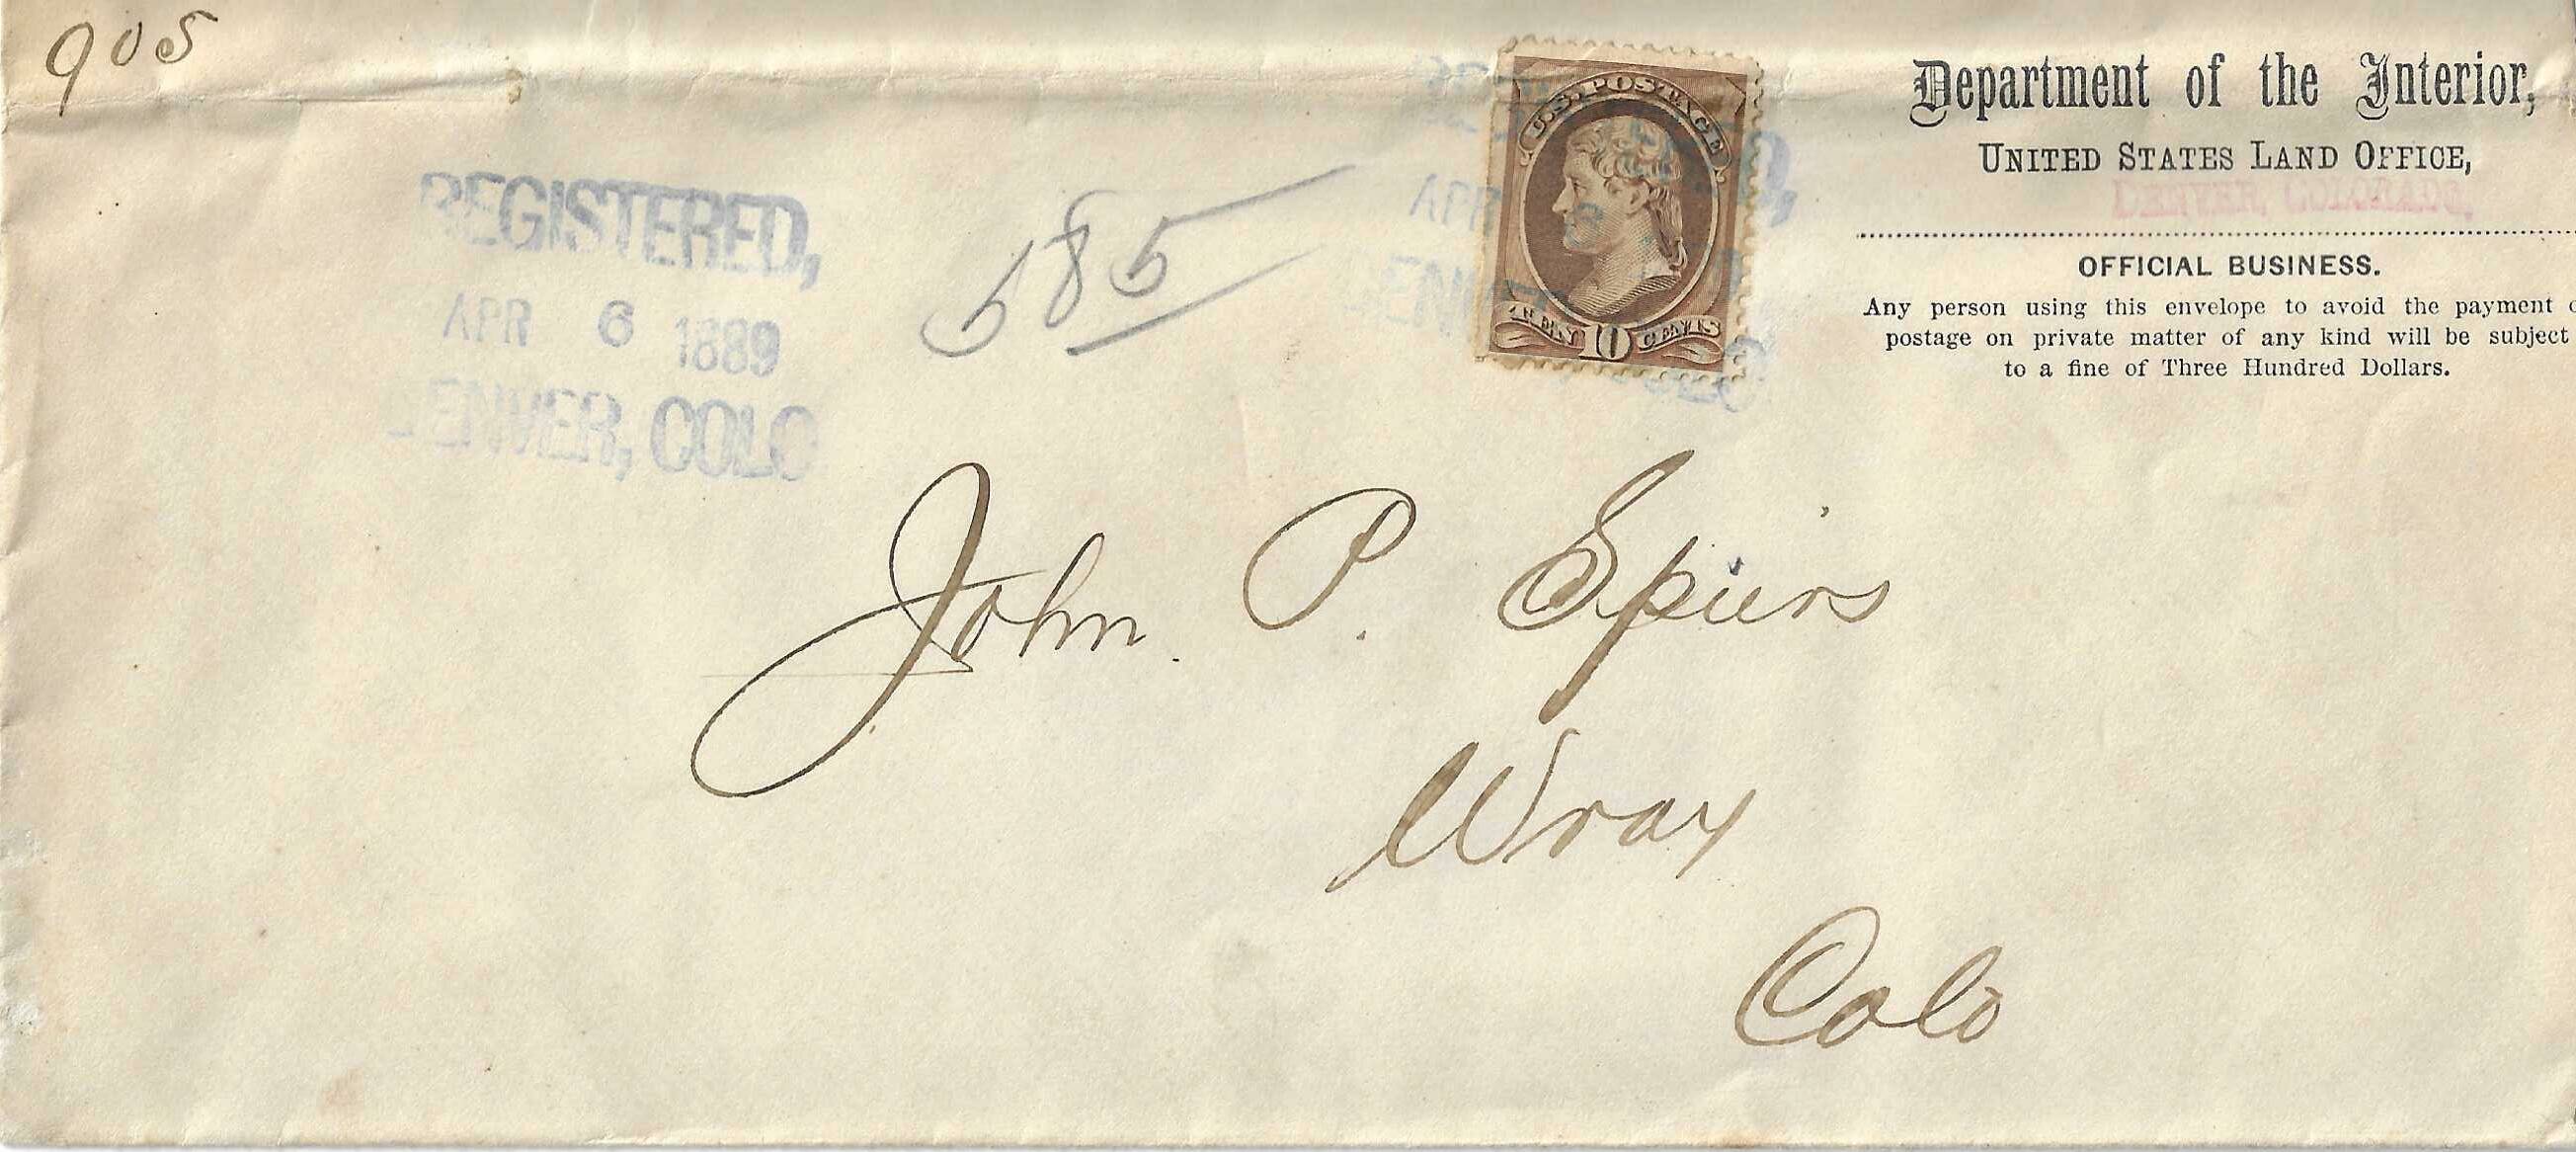 905
REGISTERED,
APR 6 1889
DENVER, COLO
585
U.S. POSTAGE
TEN 10 CENTS
APR 6
Department of the Interior,
UNITED STATES LAND OFFICE,
DENVER, COLORADO,
OFFICIAL BUSINESS.
Any person using this envelope to avoid the payment
postage on private matter of any kind will be subject
to a fine of Three Hundred Dollars.
John. P. Spiers
Wray
Colo